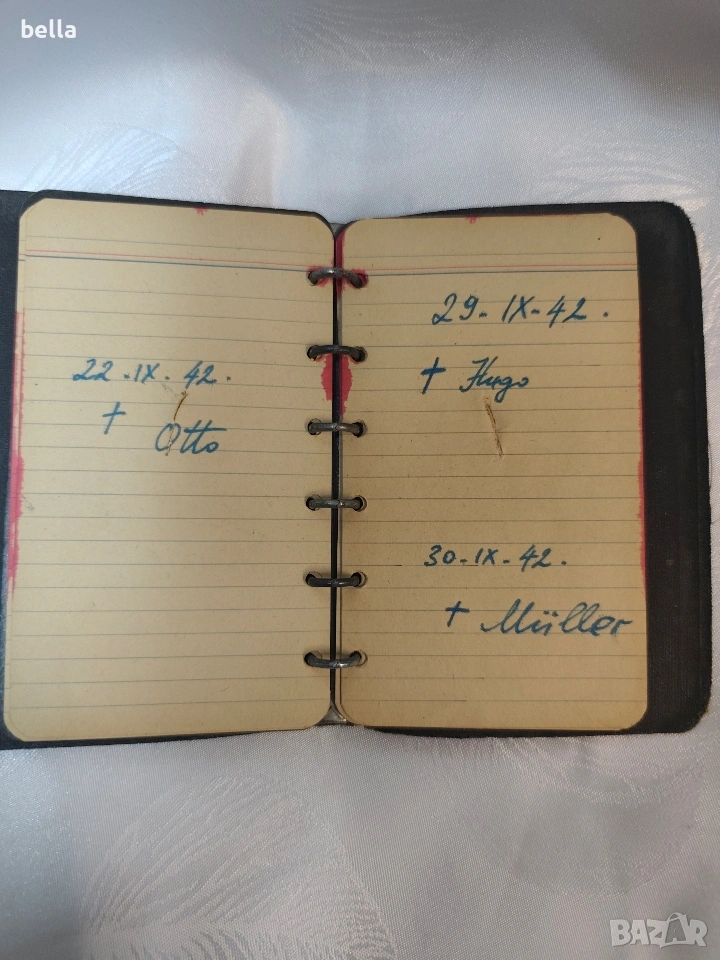 bella
22-IX-42.
+
Otto
29-IX-42.
+ Hugo
30-IX-42.
+ Müller
BAZAR